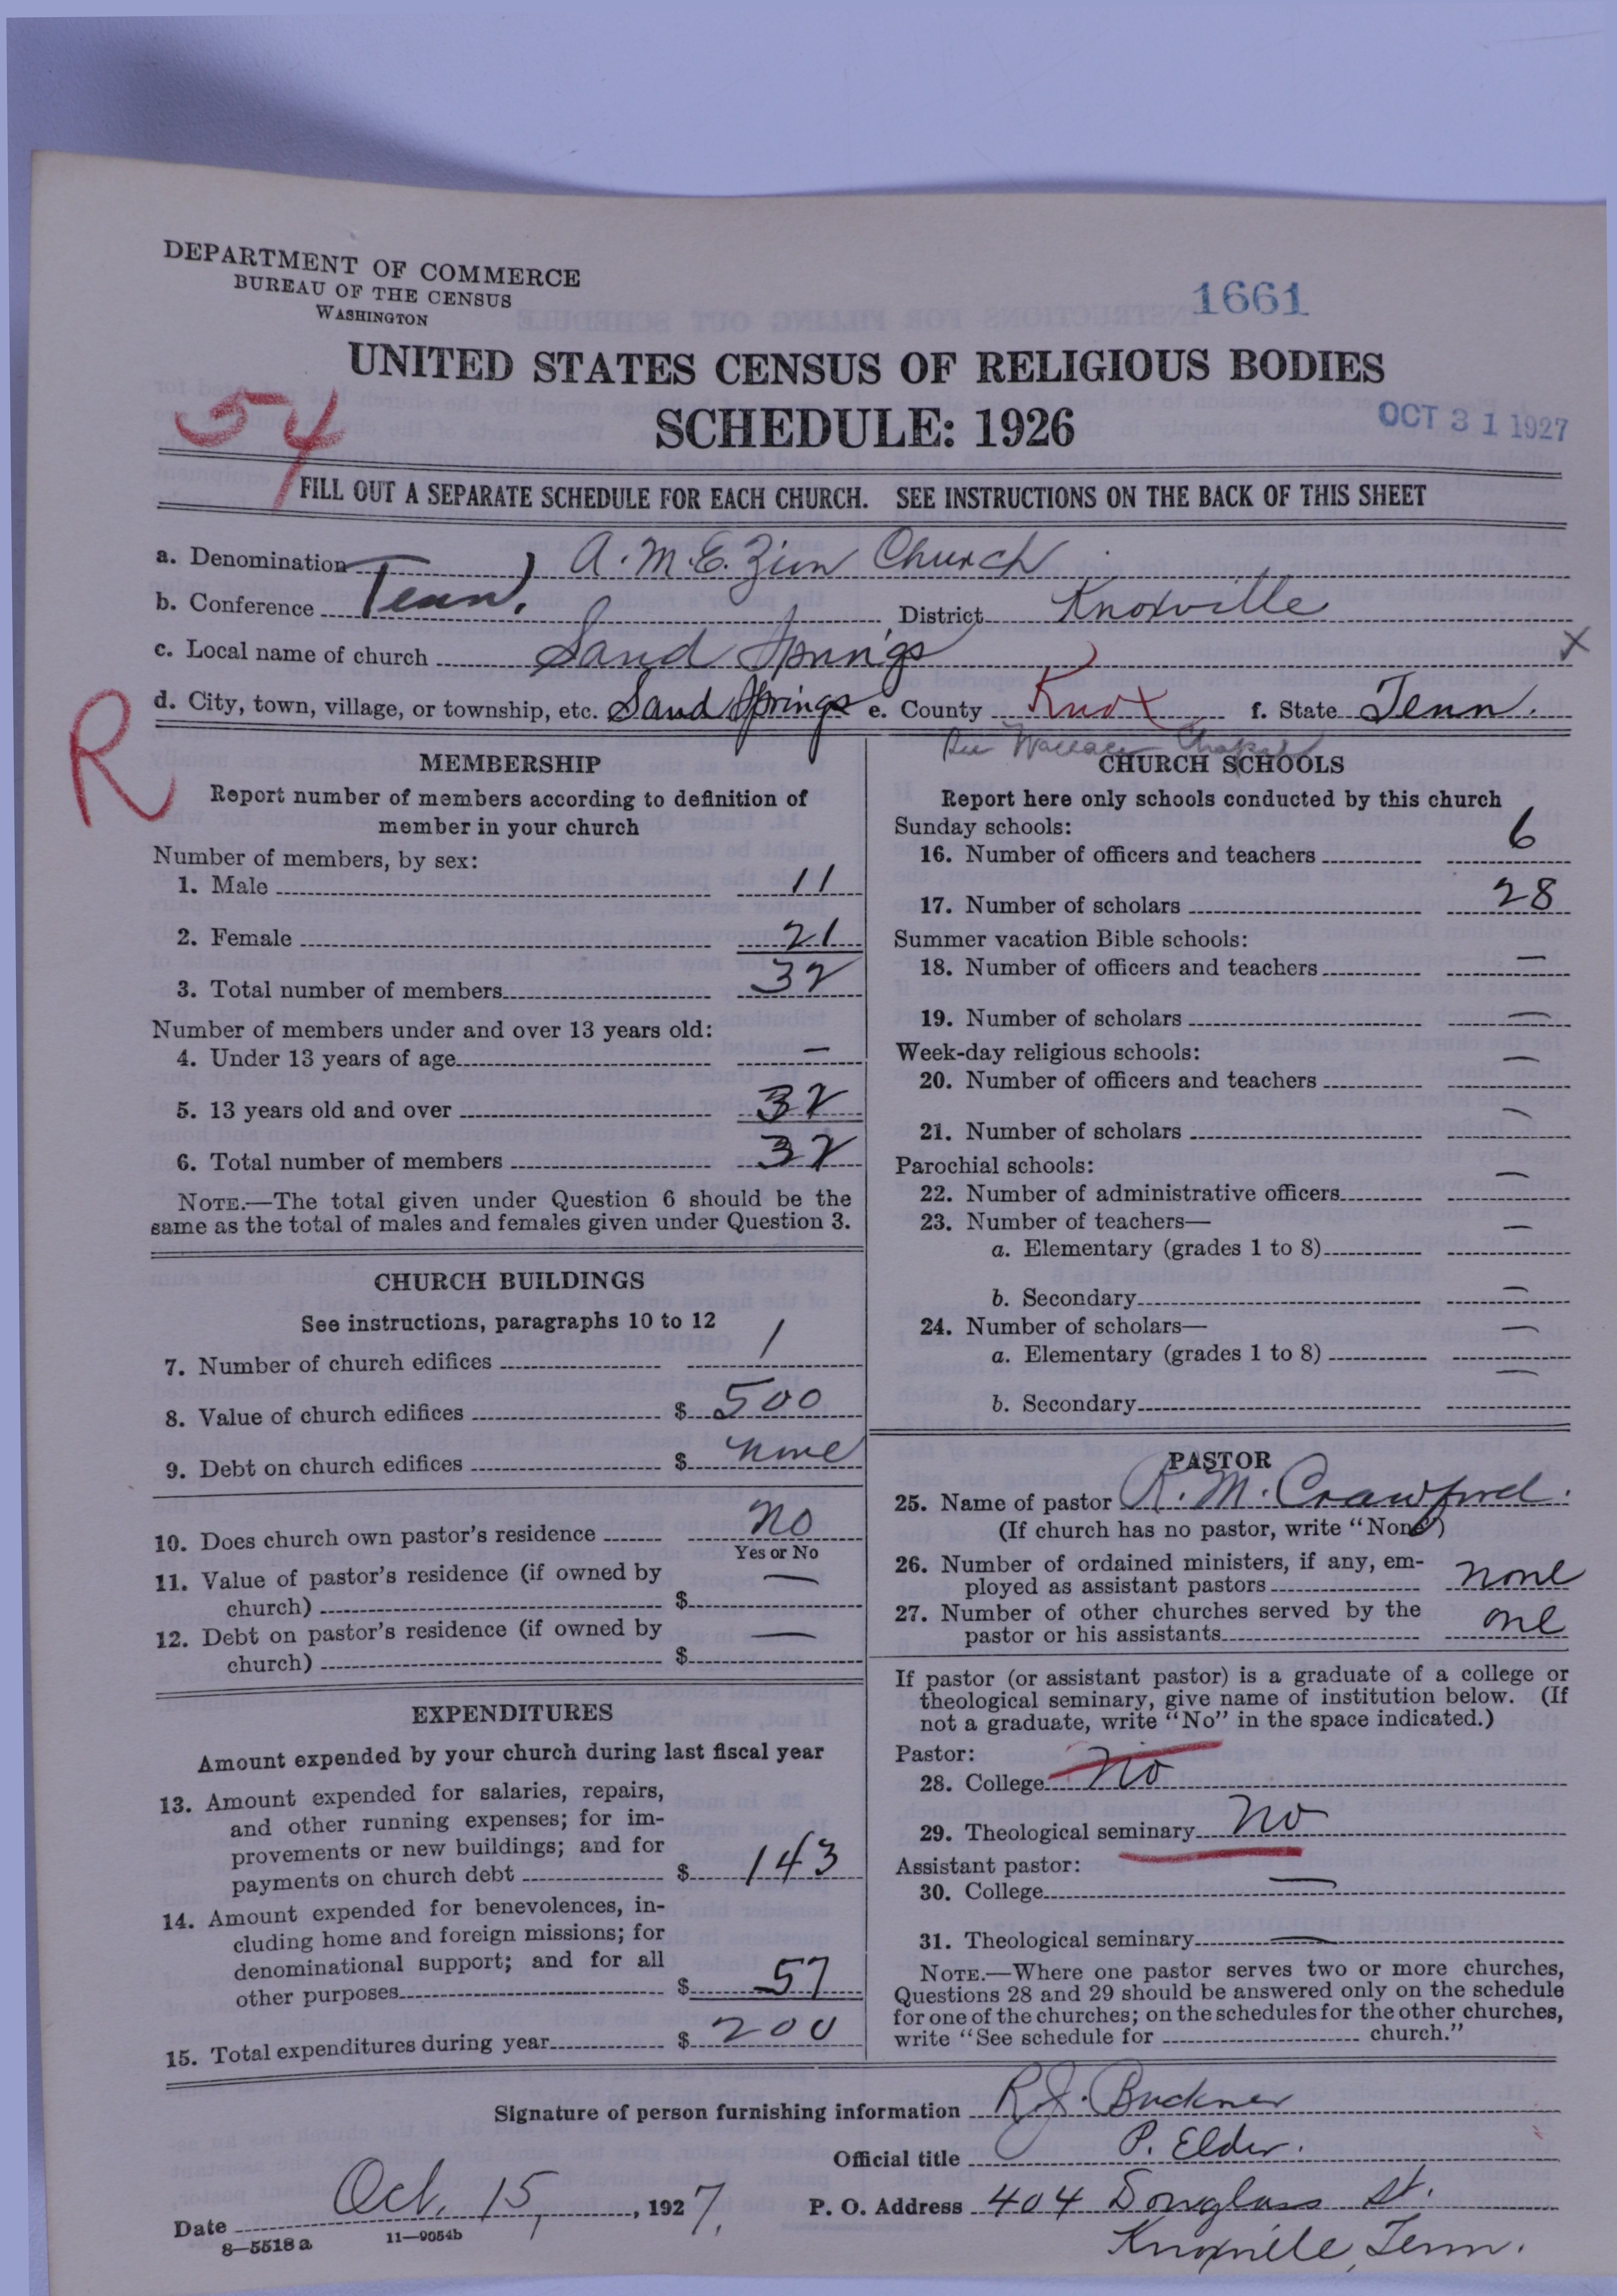 DEPARTMENT OF COMMERCE
BUREAU OF THE CENSUS
WASHINGTON
1661
UNITED STATES CENSUS OF RELIGIOUS BODIES
SCHEDULE: 1926
OCT 31 1927
54
FILL OUT A SEPARATE SCHEDULE FOR EACH CHURCH. SEE INSTRUCTIONS ON THE BACK OF THIS SHEET
a. Denomination A. M. E. Zion Church
b. Conference Tenn. District Knoxville
c. Local name of church Sand Springs X
d. City, town, village, or township, etc. Sand Springs e. County Knox f. State Tenn.
R
See Wallace Chapel
MEMBERSHIP
Report number of members according to definition of
member in your church
Number of members, by sex:
1. Male 11
2. Female 21
3. Total number of members 32
Number of members under and over 13 years old:
4. Under 13 years of age —
5. 13 years old and over 32
6. Total number of members 32
NOTE.—The total given under Question 6 should be the
same as the total of males and females given under Question 3.
CHURCH BUILDINGS
See instructions, paragraphs 10 to 12
7. Number of church edifices 1
8. Value of church edifices $ 500
9. Debt on church edifices $ none
10. Does church own pastor's residence No
Yes or No
11. Value of pastor's residence (if owned by
church) $ —
12. Debt on pastor's residence (if owned by
church) $ —
EXPENDITURES
Amount expended by your church during last fiscal year
13. Amount expended for salaries, repairs,
and other running expenses; for im-
provements or new buildings; and for
payments on church debt $ 143
14. Amount expended for benevolences, in-
cluding home and foreign missions; for
denominational support; and for all
other purposes $ 57
15. Total expenditures during year $ 200
CHURCH SCHOOLS
Report here only schools conducted by this church
Sunday schools:
16. Number of officers and teachers 6
17. Number of scholars 28
Summer vacation Bible schools:
18. Number of officers and teachers —
19. Number of scholars —
Week-day religious schools:
20. Number of officers and teachers —
21. Number of scholars —
Parochial schools:
22. Number of administrative officers —
23. Number of teachers—
a. Elementary (grades 1 to 8) —
b. Secondary —
24. Number of scholars—
a. Elementary (grades 1 to 8) —
b. Secondary —
PASTOR
25. Name of pastor R. M. Crawford.
(If church has no pastor, write "None")
26. Number of ordained ministers, if any, em-
ployed as assistant pastors none
27. Number of other churches served by the
pastor or his assistants one
If pastor (or assistant pastor) is a graduate of a college or
theological seminary, give name of institution below. (If
not a graduate, write "No" in the space indicated.)
Pastor:
28. College No
29. Theological seminary No
Assistant pastor:
30. College —
31. Theological seminary —
NOTE.—Where one pastor serves two or more churches,
Questions 28 and 29 should be answered only on the schedule
for one of the churches; on the schedules for the other churches,
write "See schedule for church."
Signature of person furnishing information R. J. Buckner
Official title P. Elder.
Date Oct. 15, 1927. P. O. Address 404 Douglass St.
8—5518a 11—9054b
Knoxville, Tenn.